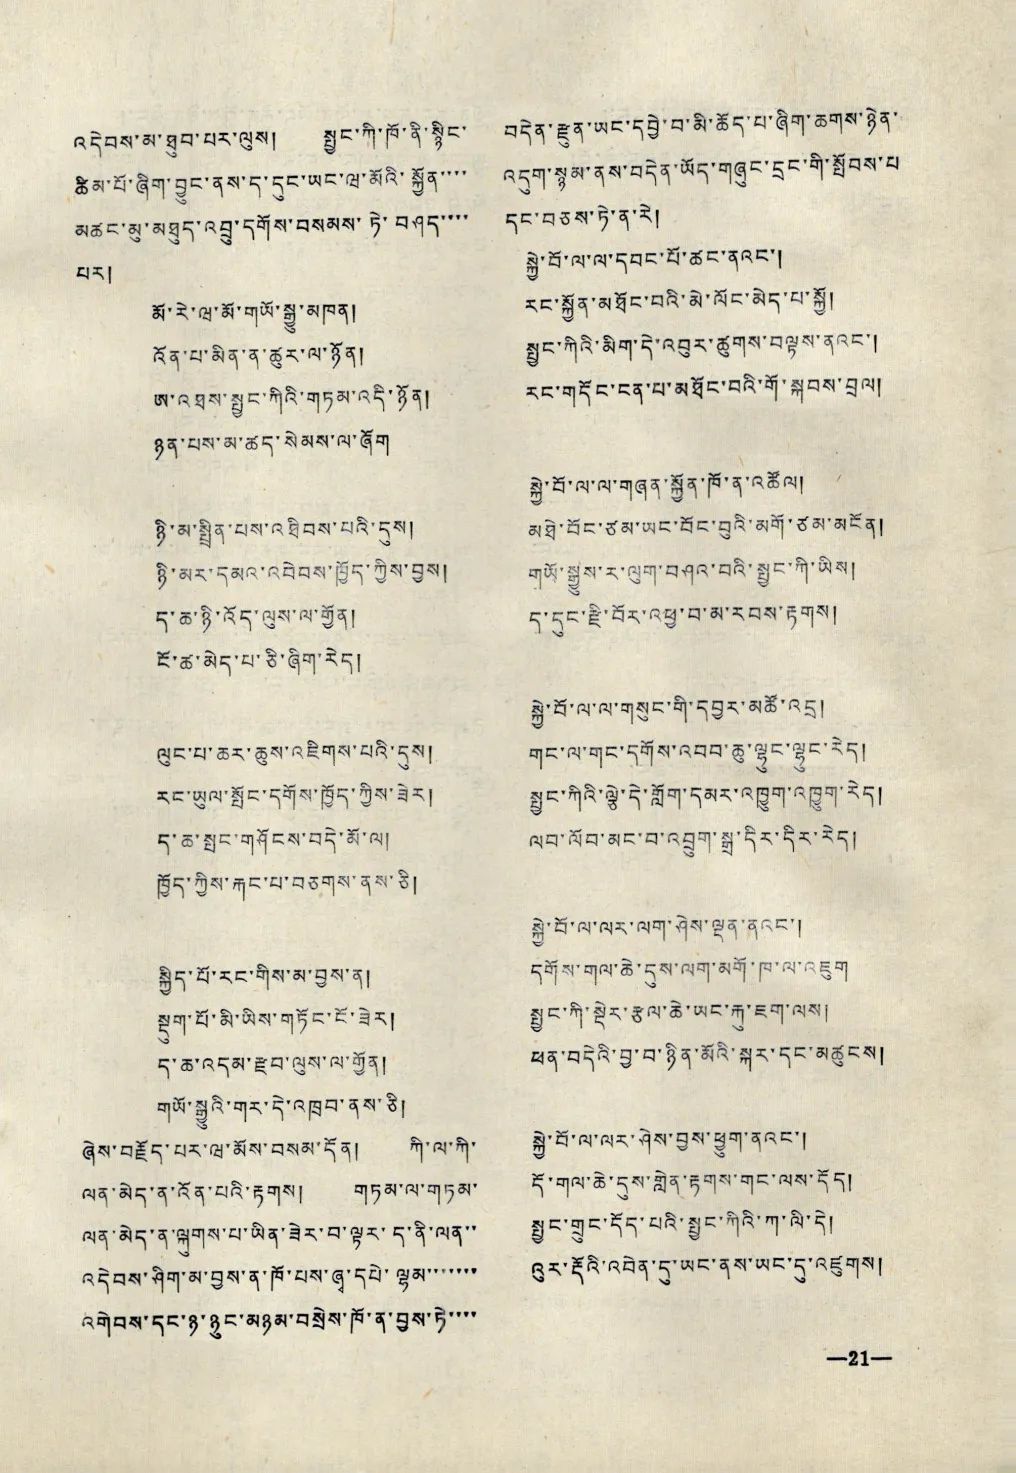 འདེབས་མ་ཐུབ་པར་ལུས། སྤྱང་ཀི་ཁོ་ནི་སྙིང་
ཚིམ་པོ་ཞིག་བྱུང་ནས་ད་དུང་ཡང་ཝ་མོའི་སྐྱོན་
མཚང་མུ་མཐུད་འབྲུ་དགོས་བསམས་ཏེ་བཤད་
པར།
མོ་རེ་ཝ་མོ་གཡོ་སྒྱུ་མཁན།
འོན་པ་མིན་ན་ཚུར་ལ་ཉོན།
ཨ་འཐས་སྤྱང་ཀིའི་གཏམ་འདི་ཉོན།
ཉན་པས་མ་ཚད་སེམས་ལ་ཞོག
ཉི་མ་སྤྲིན་པས་འཐིབས་པའི་དུས།
ཉི་མར་དམའ་འབེབས་ཁྱོད་ཀྱིས་བྱས།
ད་ཆ་ཉི་འོད་ལུས་ལ་གྱོན།
ངོ་ཚ་མེད་པ་ཅི་ཞིག་རེད།
ལུང་པ་ཆར་ཆུས་འཇིགས་པའི་དུས།
རང་ཡུལ་སྤོང་དགོས་ཁྱོད་ཀྱིས་ཟེར།
ད་ཆ་སྤང་གཤོངས་བདེ་མོ་ལ།
ཁྱོད་ཀྱིས་རྐང་པ་བཅགས་ནས་ཅི།
སྐྱིད་པོ་རང་གིས་མ་བྱས་ན།
སྡུག་པོ་མི་ཡིས་གཏོང་ངོ་ཟེར།
ད་ཆ་འདམ་རྫབ་ལུས་ལ་གྱོན།
གཡོ་སྒྱུའི་གར་དེ་འཁྲབ་ནས་ཅི།
ཞེས་བརྗོད་པར་ཝ་མོས་བསམ་དོན། ཀི་ལ་ཀི་
ལན་མེད་ན་འོན་པའི་རྟགས། གཏམ་ལ་གཏམ་
ལན་མེད་ན་ལྐུགས་པ་ཡིན་ཟེར་བ་ལྟར་ད་ནི་ལན་
འདེབས་ཤིག་མ་བྱས་ན་ཁོ་པས་ཞྭ་དཔེ་ལྷམ་
འགེབས་དང་ཉ་ཉུང་མཉམ་བསྲེས་ཁོ་ན་བྱས་ཏེ་
བདེན་རྫུན་ཡང་དབྱེ་བ་མི་ཆོད་པ་ཞིག་ཆགས་ཉེན་
འདུག་སྙམ་ནས་བདེན་ཡོད་གཞུང་དྲང་གི་སྤོབས་པ
དང་བཅས་ཏེ་ན་རེ།
སྐྱེ་བོ་ལ་ལ་དབང་པོ་ཚང་ནའང་།
རང་སྐྱོན་མཐོང་བའི་མེ་ལོང་མེད་པ་སྐྱོ།
སྤྱང་ཀིའི་མིག་དེ་འབུར་ཚུགས་བལྟས་ནའང་།
རང་གདོང་ངན་པ་མཐོང་བའི་གོ་སྐབས་བྲལ།
སྐྱེ་བོ་ལ་ལ་གཞན་སྐྱོན་ཁོ་ན་འཚོལ།
མཐེ་བོང་ཙམ་ཡང་བོང་བུའི་མགོ་ཙམ་མངོན།
གཡོ་སྒྱུས་ར་ལུག་བཤའ་བའི་སྤྱང་ཀི་ཡིས།
ད་དུང་རྫི་བོར་འཕྱ་བ་མ་རབས་རྟགས།
སྐྱེ་བོ་ལ་ལ་གསུང་གི་དབྱར་མཚོ་འདྲ།
གང་ལ་གང་དགོས་འབབ་ཆུ་ལྷུང་ལྷུང་རེད།
སྤྱང་ཀིའི་ལྕེ་དེ་གློག་དམར་འཁྱུག་འཁྱུག་རེད།
ལབ་ལོབ་མང་བ་འབྲུག་སྒྲ་དིར་དིར་རེད།
སྐྱེ་བོ་ལ་ལར་ལག་ཤེས་ལྡན་ནའང་།
དགོས་གལ་ཆེ་དུས་ལག་མགོ་ཁ་ལ་འཇུག
སྤྱང་ཀི་སྡེར་རྩལ་ཆེ་ཡང་རྐུ་ཇག་ལས།
ཕན་བདེའི་བྱ་བ་ཉིན་མོའི་སྐར་དང་མཚུངས།
སྐྱེ་བོ་ལ་ལར་ཤེས་བྱས་ཕྱུག་ནའང་།
དོ་གལ་ཆེ་དུས་གླེན་རྟགས་གང་ལས་དོད།
སྤྱང་གྲུང་དོད་པའི་སྤྱང་ཀིའི་ཀ་ལི་དེ།
འུར་རྡོའི་འབེན་དུ་ཡང་ནས་ཡང་དུ་འཛུགས།
—21—